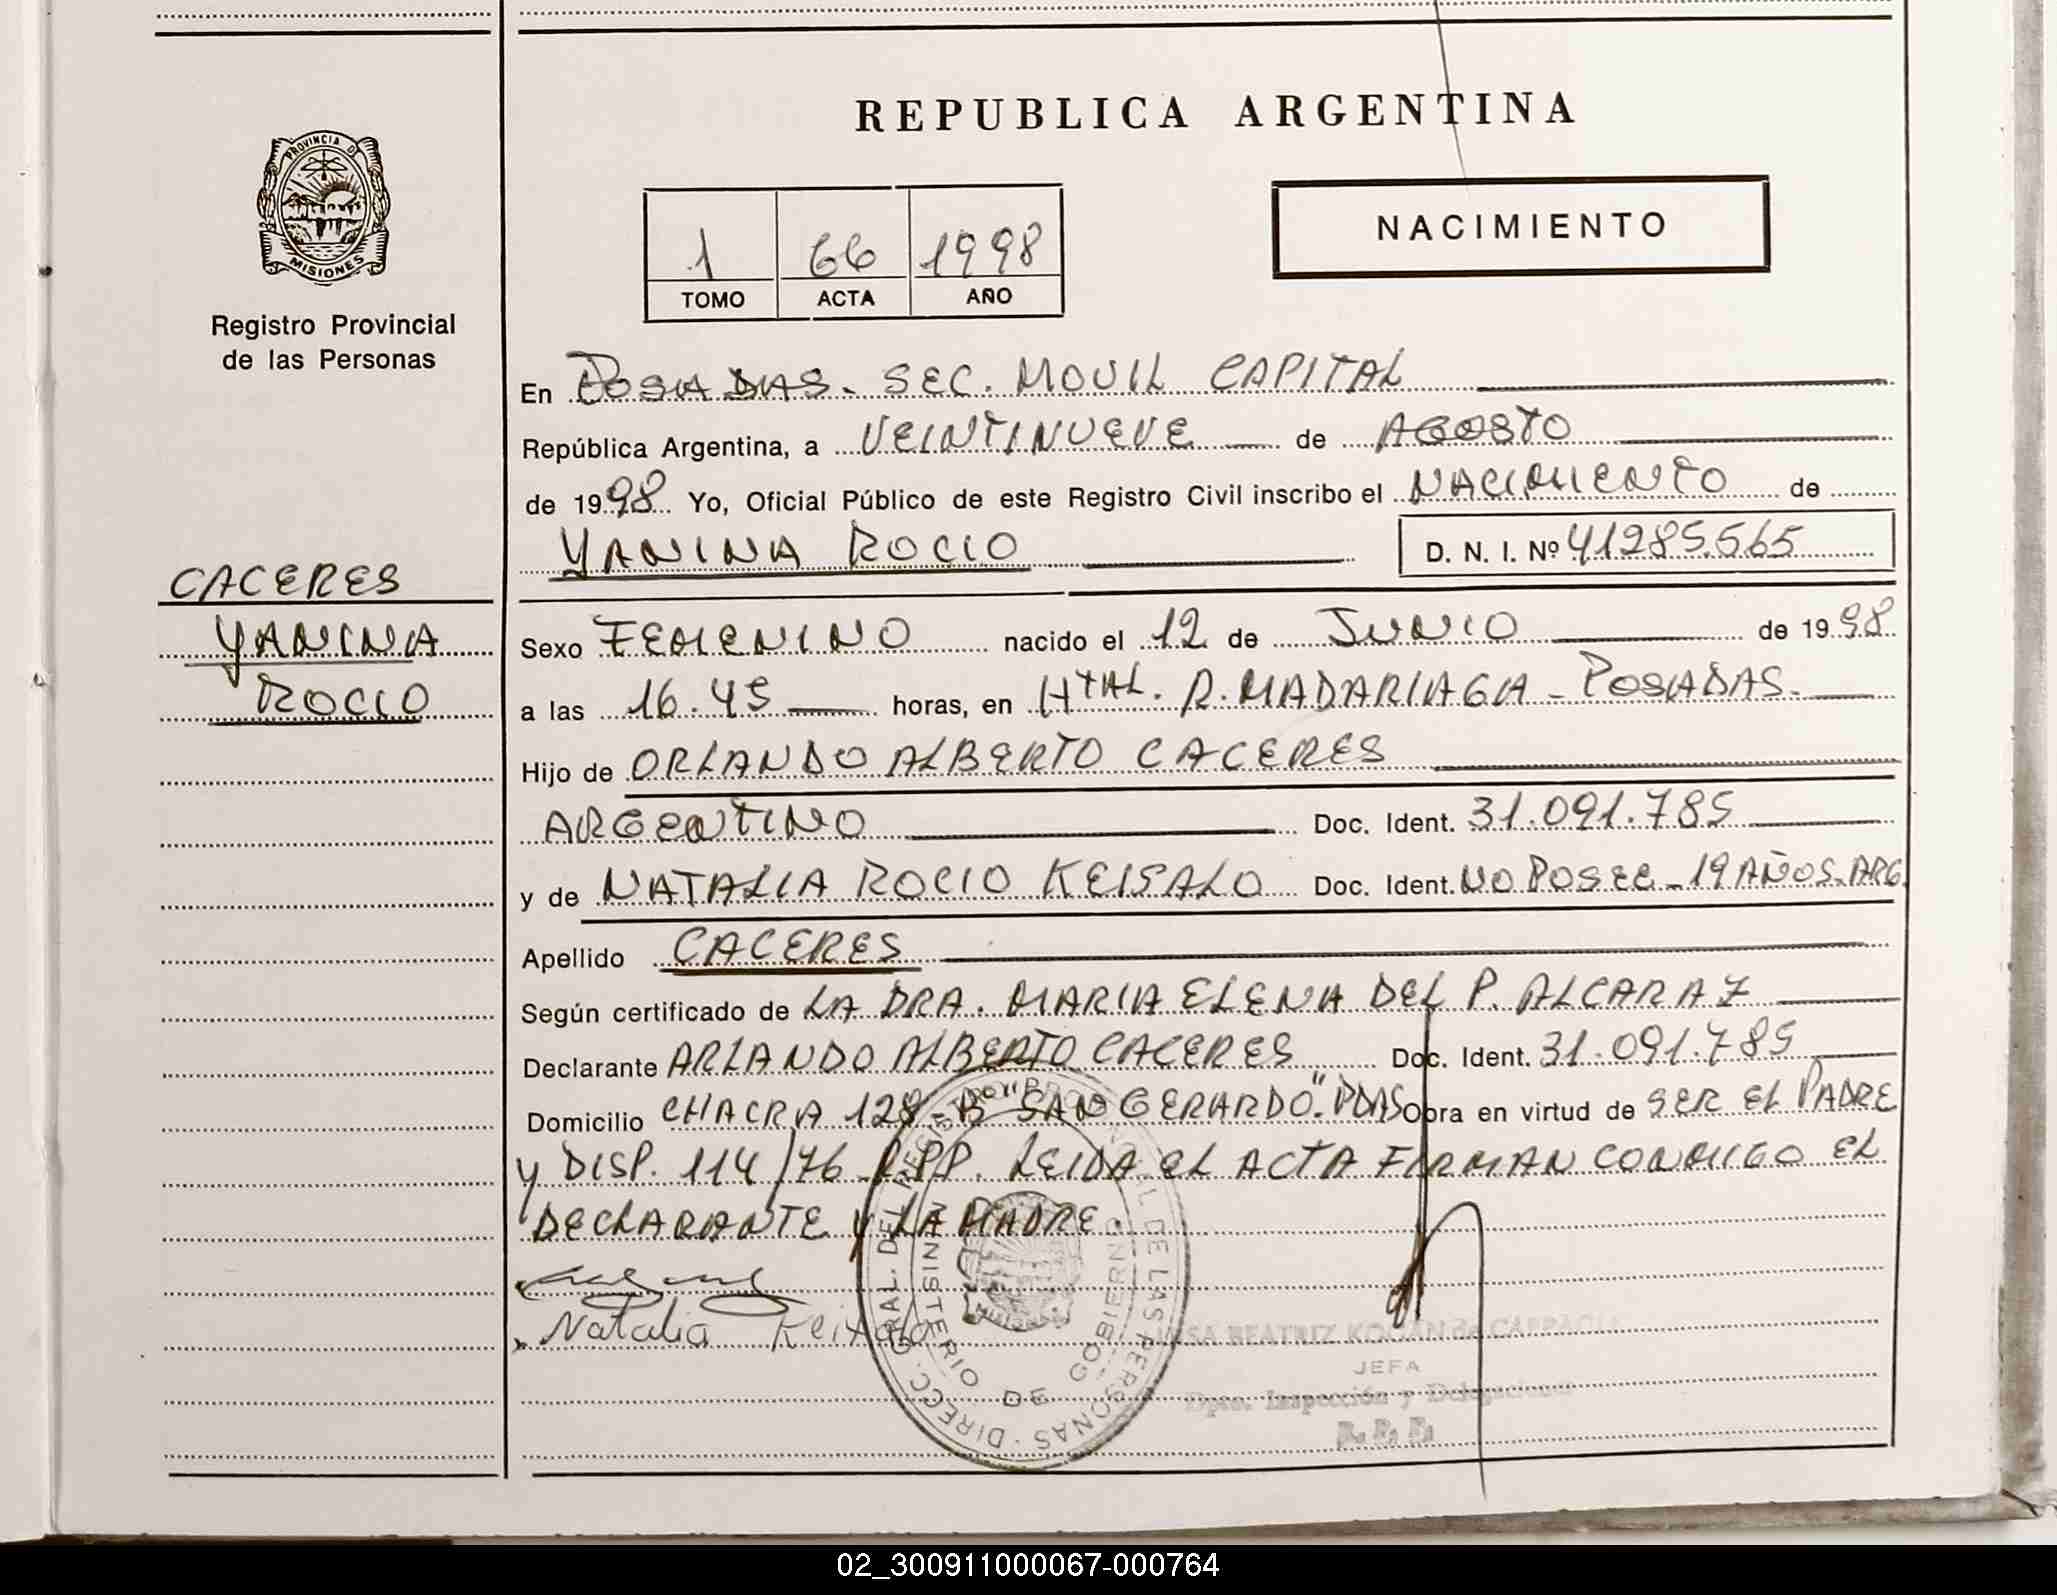 REPUBLICA ARGENTINA
PROVINCIA DE
MISIONES
Registro Provincial
de las Personas
1 66 1998
TOMO ACTA AÑO
NACIMIENTO
En POSADAS - SEC. MOVIL CAPITAL
República Argentina, a VEINTINUEVE de AGOSTO
de 1998 Yo, Oficial Público de este Registro Civil inscribo el NACIMIENTO de
YANINA ROCIO D. N. I. Nº 41285.565
CACERES
YANINA
ROCIO
Sexo FEMENINO nacido el 12 de JUNIO de 1998
a las 16.45 horas, en HTAL. R. MADARIAGA - POSADAS.
Hijo de ORLANDO ALBERTO CACERES
ARGENTINO Doc. Ident. 31.091.785
y de NATALIA ROCIO KEISALO Doc. Ident. NO POSEE - 19 AÑOS. ARG.
Apellido CACERES
Según certificado de LA DRA. MARIA ELENA DEL P. ALCARAZ
Declarante ARLANDO ALBERTO CACERES Doc. Ident. 31.091.785
Domicilio CHACRA 128 - B "SAN GERARDO". PDAS Obra en virtud de SER EL PADRE
Y DISP. 114/76 RPP. LEIDA EL ACTA FIRMAN CONMIGO EL
DECLARANTE Y LA MADRE.
Natalia
DIRECC. GRAL. DEL REGISTRO PROVINCIAL DE LAS PERSONAS
MINISTERIO DE GOBIERNO
BEATRIZ KOGAN de
JEFA
Dpto. Inspección y Delegaciones
R. P. P.
02_300911000067-000764